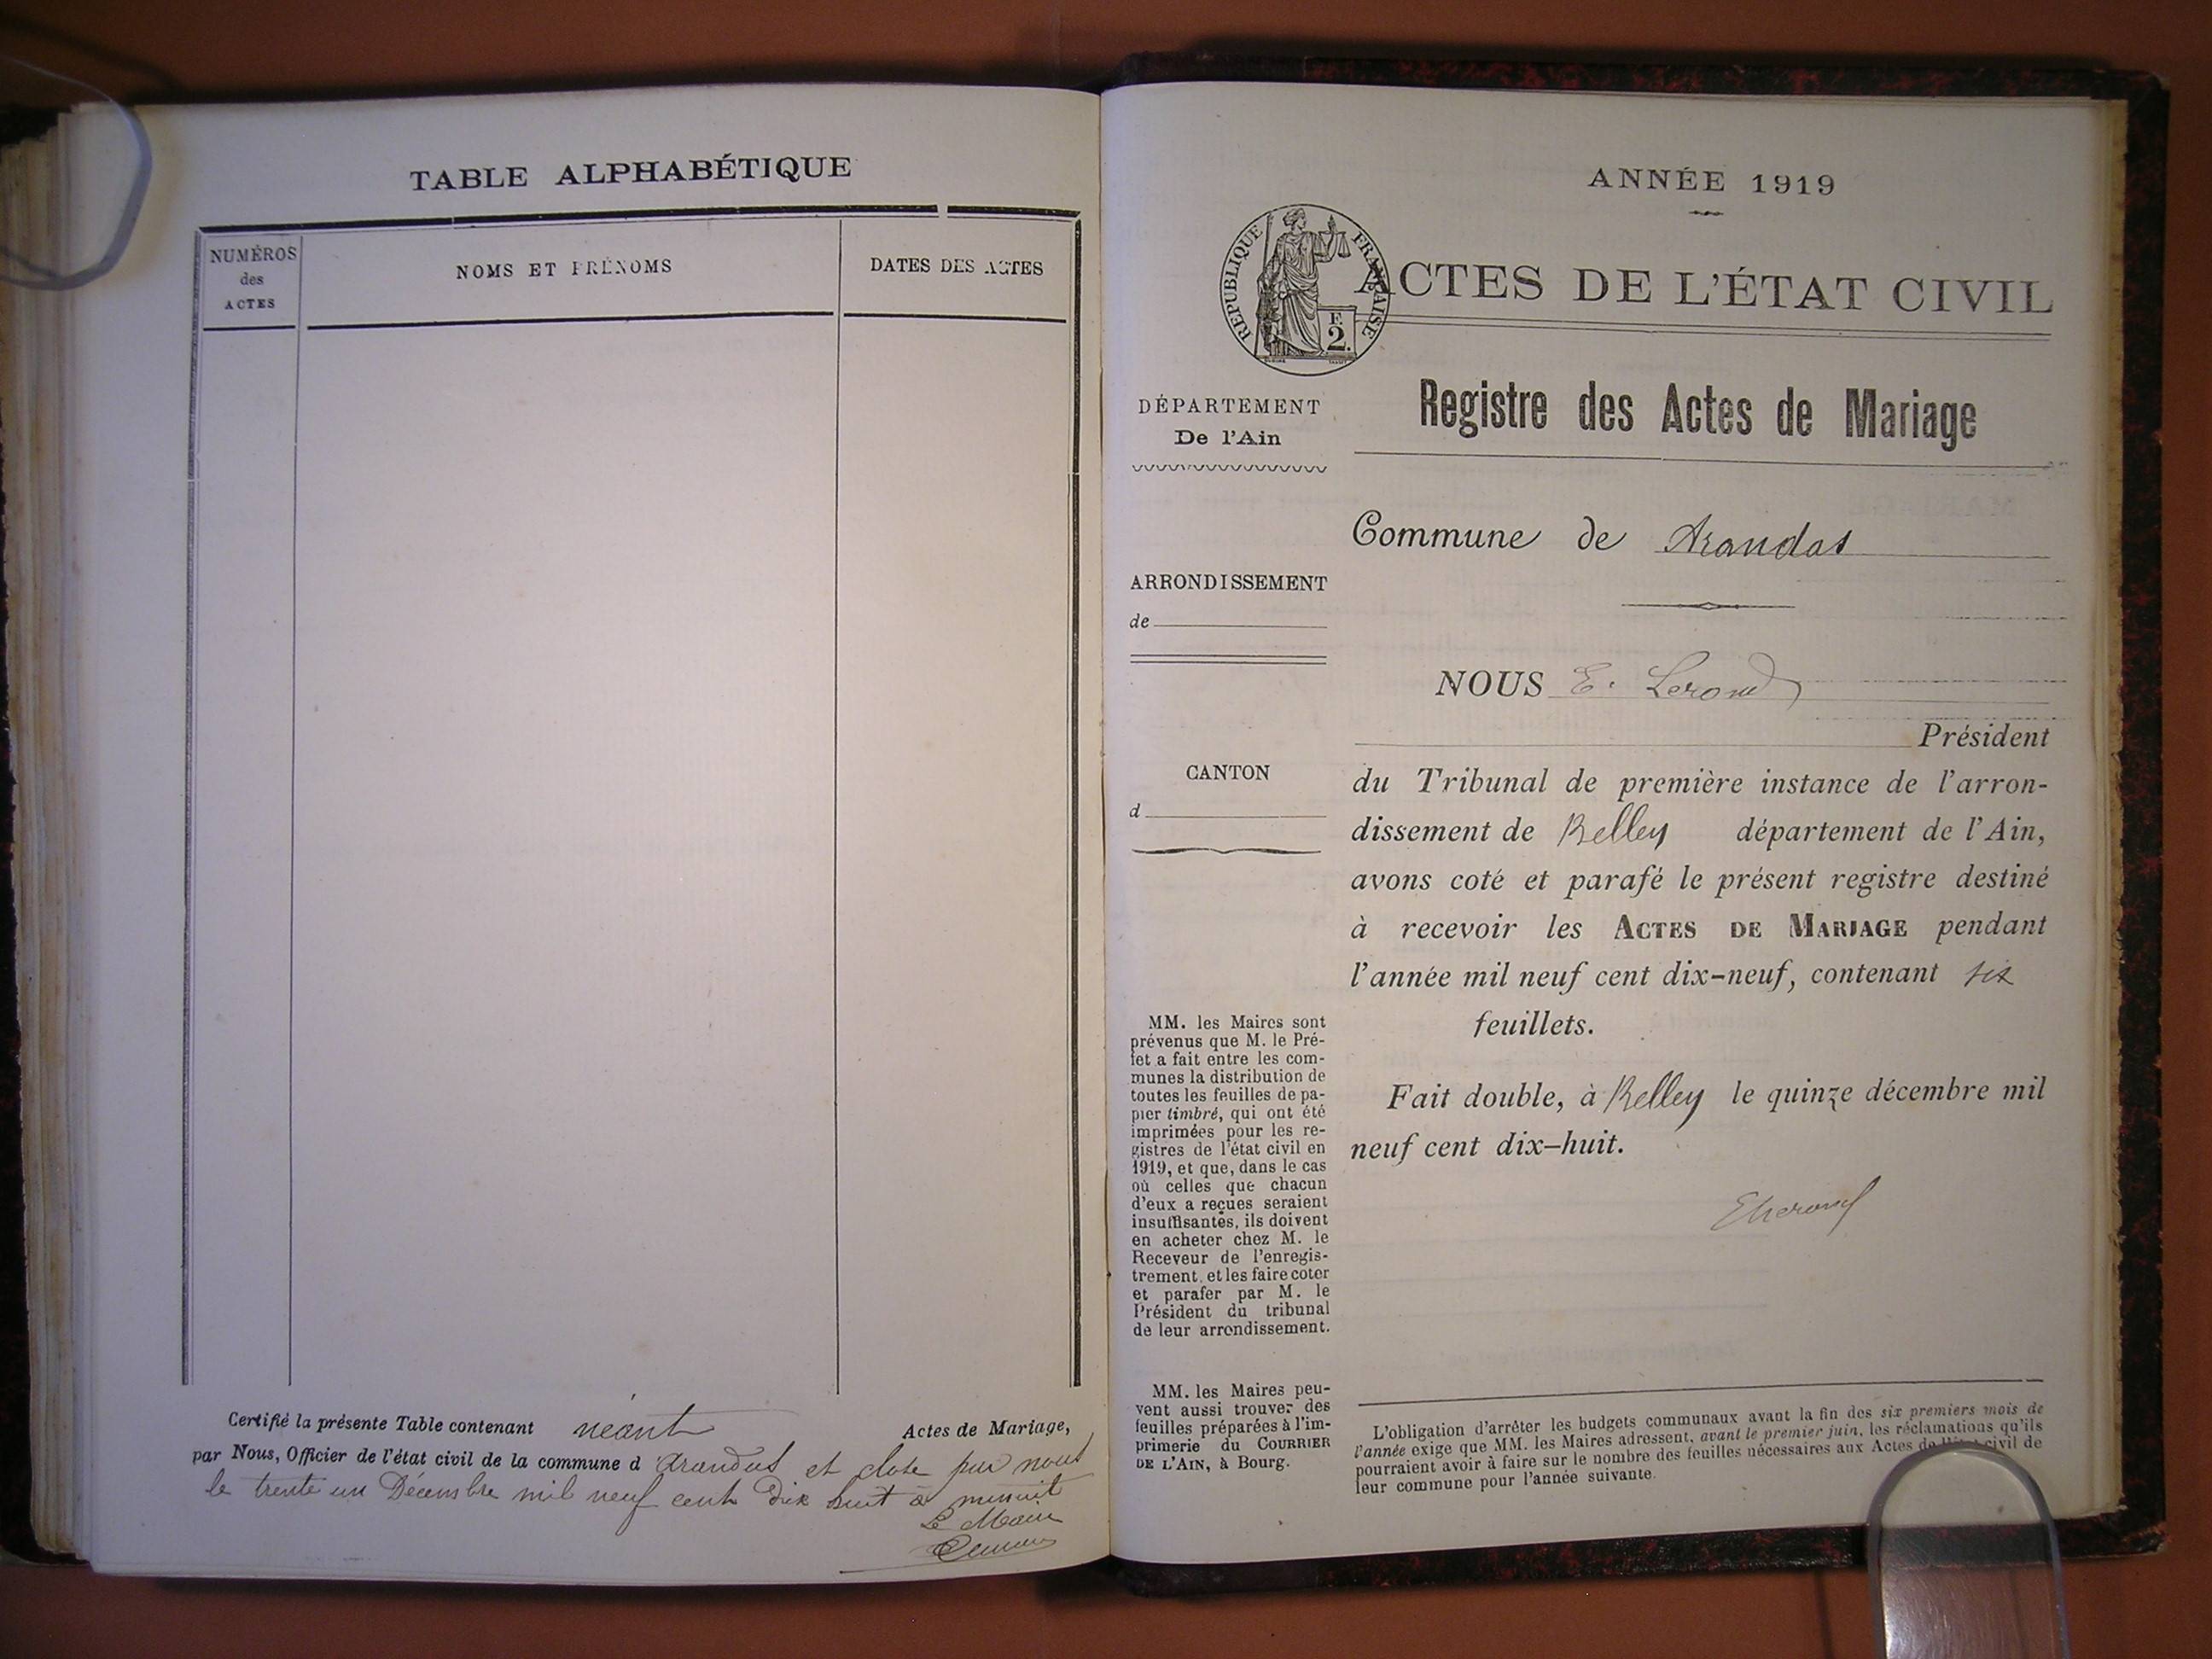 TABLE ALPHABÉTIQUE
NUMÉROS
des
ACTES
NOMS ET PRÉNOMS
DATES DES ACTES
Certifié la présente Table contenant néant Actes de Mariage,
par Nous, Officier de l'état civil de la commune d Arandas et close par nous
le trente un Décembre mil neuf cent dix huit à minuit
Le Maire
ANNÉE 1919
REPUBLIQUE FRANÇAISE
F.
2.
ACTES DE L'ÉTAT CIVIL
DÉPARTEMENT
De l'Ain
ARRONDISSEMENT
de
CANTON
d
MM. les Maires sont
prévenus que M. le Pré-
fet a fait entre les com-
munes la distribution de
toutes les feuilles de pa-
pier timbré, qui ont été
imprimées pour les re-
gistres de l'état civil en
1919, et que, dans le cas
où celles que chacun
d'eux a reçues seraient
insuffisantes, ils doivent
en acheter chez M. le
Receveur de l'enregis-
trement, et les faire coter
et parafer par M. le
Président du tribunal
de leur arrondissement.
MM. les Maires peu-
vent aussi trouver des
feuilles préparées à l'im-
primerie du COURRIER
DE L'AIN, à Bourg.
Registre des Actes de Mariage
Commune de Arandas
NOUS E. Lerond
Président
du Tribunal de première instance de l'arron-
dissement de Belley département de l'Ain,
avons coté et parafé le présent registre destiné
à recevoir les ACTES DE MARIAGE pendant
l'année mil neuf cent dix-neuf, contenant six
feuillets.
Fait double, à Belley le quinze décembre mil
neuf cent dix-huit.
ELerond
L'obligation d'arrêter les budgets communaux avant la fin des six premiers mois de
l'année exige que MM. les Maires adressent, avant le premier juin, les réclamations qu'ils
pourraient avoir à faire sur le nombre des feuilles nécessaires aux Actes de l'état civil de
leur commune pour l'année suivante.